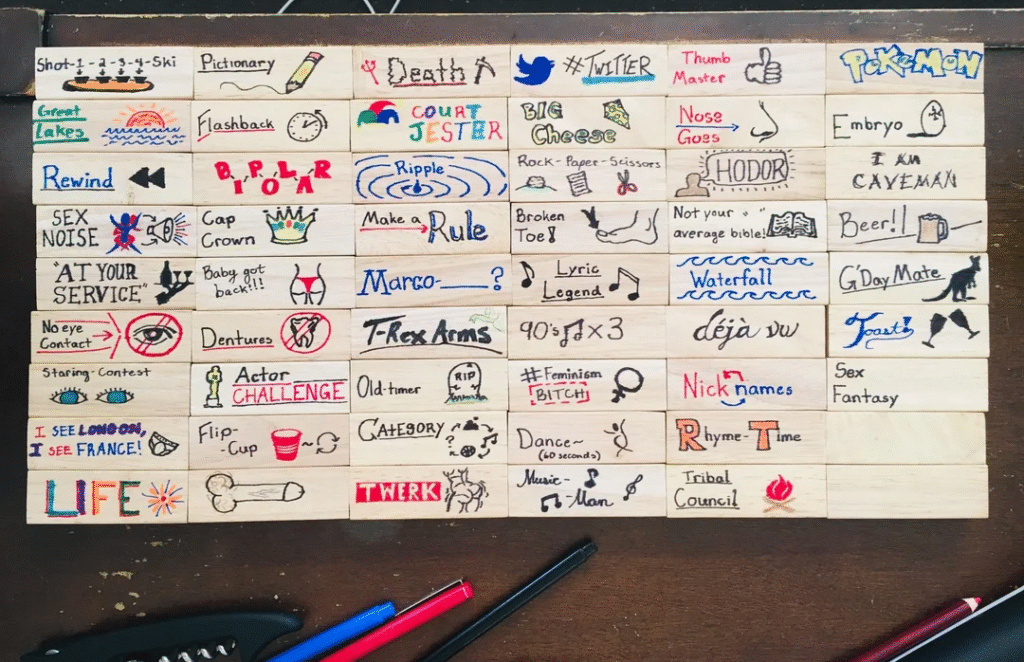 Shot-1-2-3-4-Ski
Pictionary
Death
#TWITTER
Thumb
Master
POKéMON
Great
Lakes
Flashback
COURT
JESTER
BIG
Cheese
Nose
Goes
Embryo
Rewind
BIPOLAR
Ripple
Rock-Paper-Scissors
HODOR
I AM
CAVEMAN
SEX
NOISE
Cap
Crown
Make a
Rule
Broken
Toe!
Not your " "
average bible!
Beer!!
"AT YOUR
SERVICE"
Baby got
back!!!
Marco-____?
Lyric
Legend
Waterfall
G'Day Mate
No eye
Contact
Dentures
T-Rex Arms
90's x3
déjà vu
Toast!
Staring-Contest
Actor
CHALLENGE
Old-timer
RIP
#Feminism
BITCH
Nicknames
Sex
Fantasy
I SEE LONDON,
I SEE FRANCE!
Flip-
-Cup
CATEGORY
?
Dance~
(60 seconds)
Rhyme-Time
LIFE
TWERK
Music-
-Man
Tribal
Council